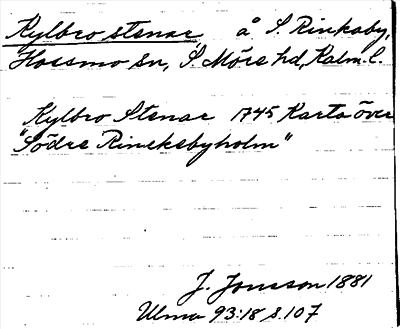 Kylbro stenar å S. Rinkaby,
Hossmo sn, S. Möre hd, Kalm. l.
Kylbro Stenar 1745 Karta över
"Södre Rinckebyholm"
J. Jonsson 1881
Ulma 93:18 s. 107